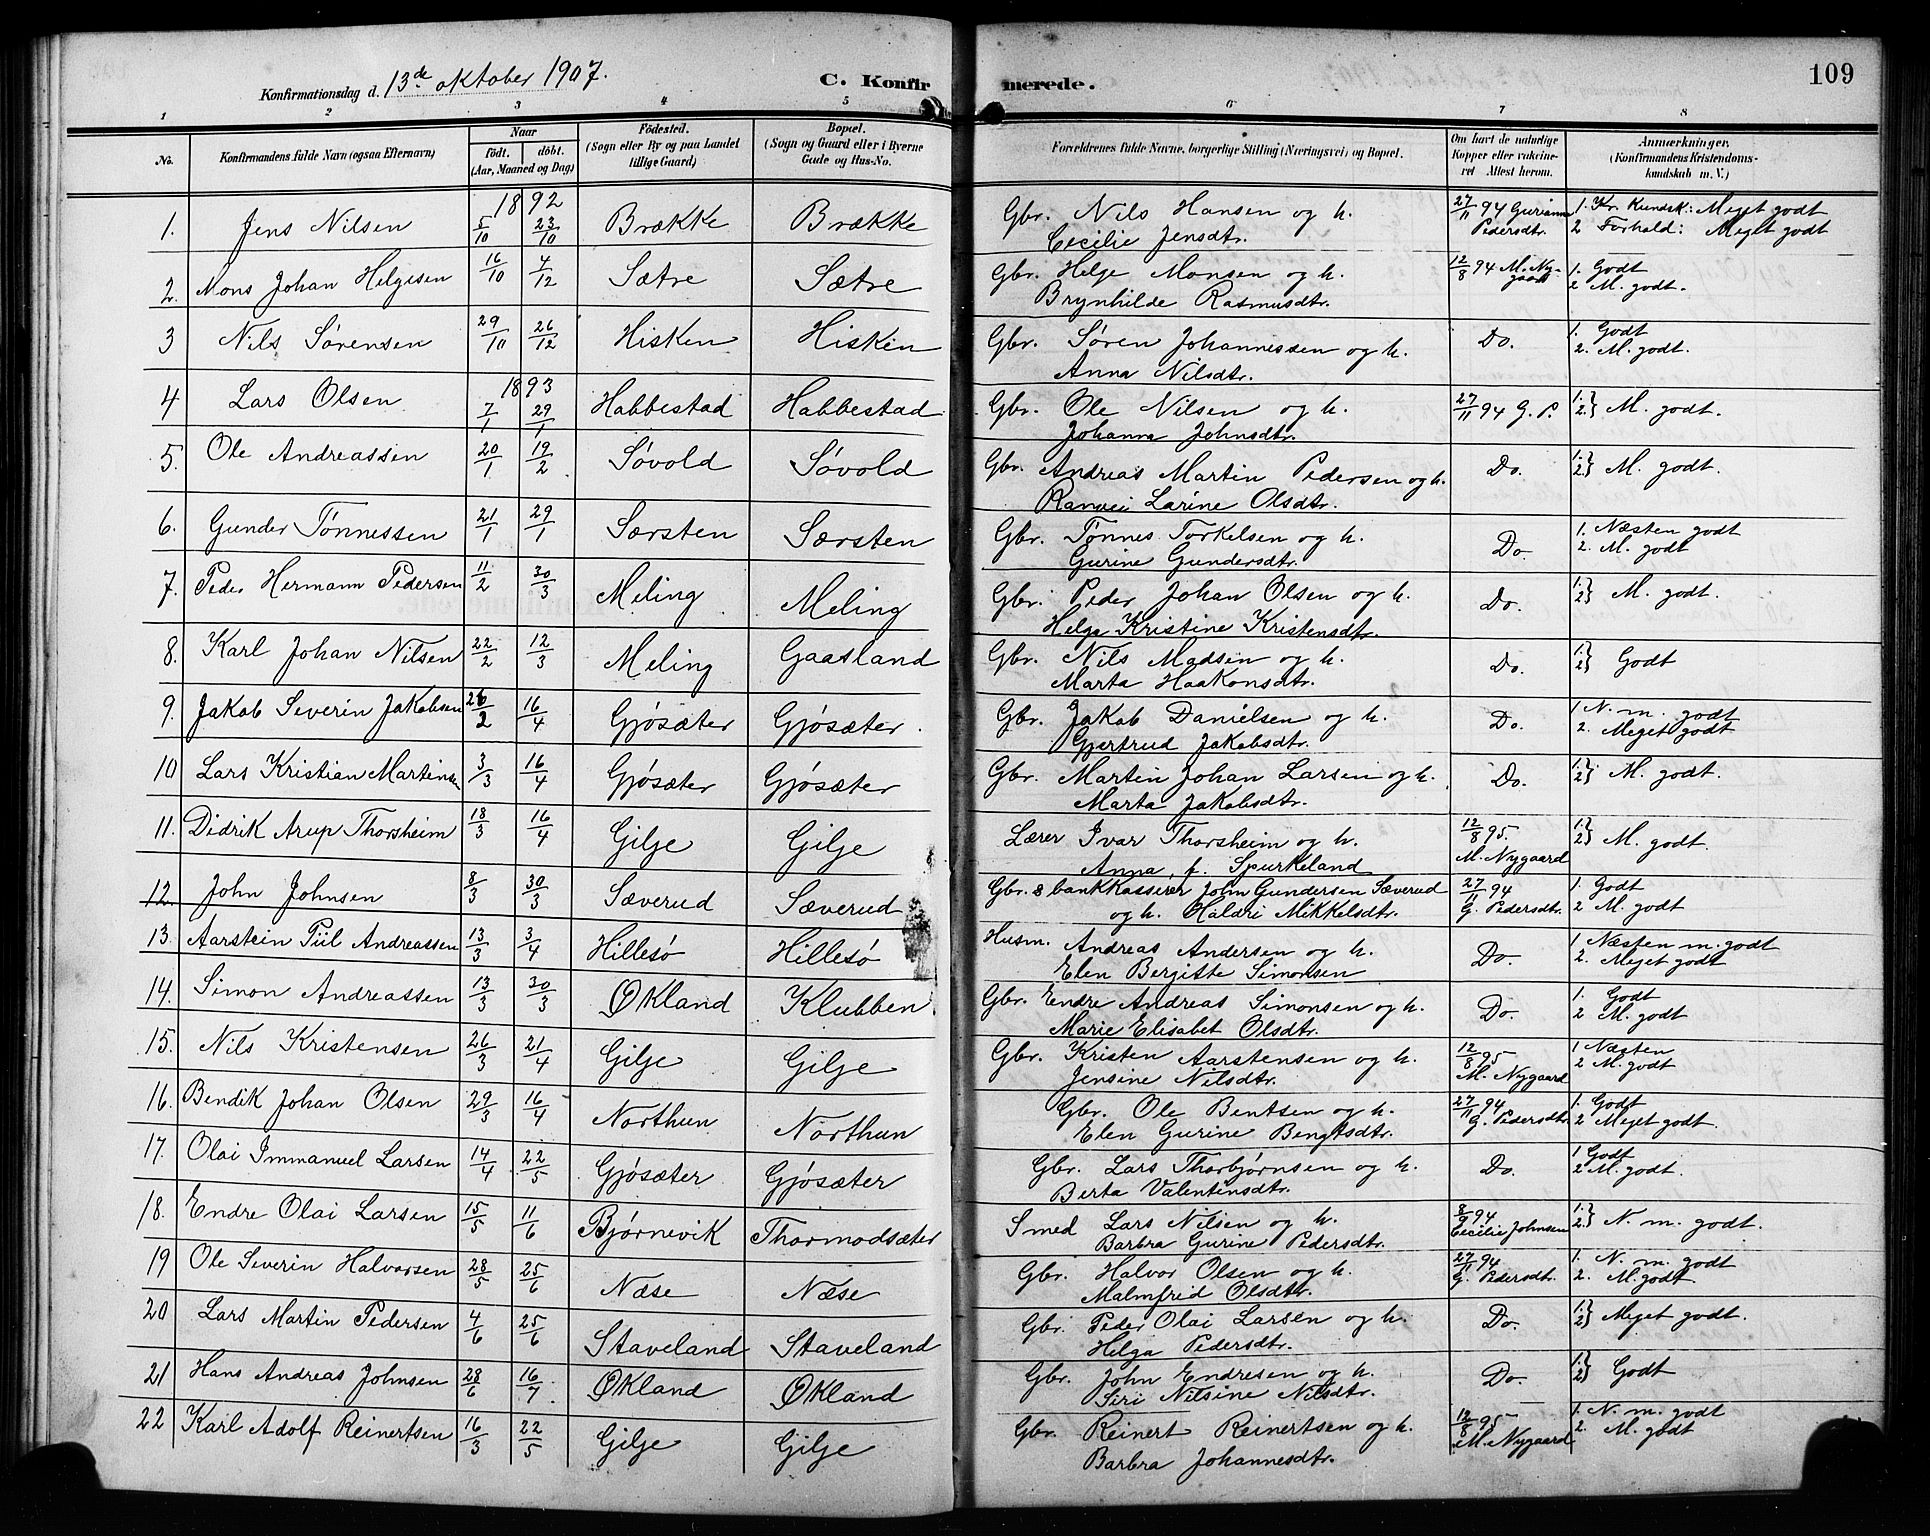 109
Konfirmationsdag d. 13de oktober 1907. C. Konfirmerede.
1 2 3 4 5 6 7 8
No. Konfirmandens fulde Navn (ogsaa Efternavn) Naar födt. döbt. (Aar, Maaned og Dag) Födested. (Sogn eller By og paa Landet tillige Gaard) Bopæl. (Sogn og Gaard eller i Byerne Gade og Hus-No. Forældrenes fulde Navne, borgerlige Stilling (Næringsvei) og Bopæl. Om havt de naturlige Kopper eller vakcineret Attest herom. Anmærkninger. (Konfirmandens Kristendomskundskab m. V.)
1892
1. Jens Nilsen 5/10 23/10 Brække Brække Gbr. Nils Hansen og h. 27/11 94 Gurianna 1. Kr. Kundsk: Meget godt
Cecilie Jensdtr. Pedersdtr. 2 Forhold: Meget godt
2. Mons Johan Helgesen 16/10 4/12 Sætre Sætre Gbr. Helge Monsen og h. 12/8 94 M. Nygaard 1. Godt
Brynhilde Rasmusdtr. 2 M. godt.
3 Nils Sørensen 29/10 26/12 Hisken Hisken Gbr. Søren Johannessen og h. Do. 1. Godt
Anna Nilsdtr. 2. M. godt.
1893
4 Lars Olsen 7/1 29/1 Habbestad Habbestad Gbr. Ole Nilsen og h. 27/11 94 G. P. 1.2.} M. godt.
Johanna Johnsdtr.
5. Ole Andreassen 20/1 19/2 Søvold Søvold Gbr. Andreas Martin Pedersen og h. Do. 1.2} M. godt.
Ranvei Larine Olsdtr.
6. Gunder Tønnessen 21/1 29/1 Særsten Særsten Gbr. Tønnes Torkelsen og h. Do. 1. Næsten godt
Gurine Gundersdtr. 2. M. godt
7. Peder Hermann Pedersen 11/2 30/3 Meling Meling Gbr. Peder Johan Olsen og h. Do. 1.2} M. godt.
Helga Kristine Kristensdtr.
8. Karl Johan Nilsen 22/2 12/3 Meling Gaasland Gbr. Nils Madsen og h. Do. 1.2} Godt
Marta Haakonsdtr.
9. Jakob Severin Jakobsen 26/2 16/4 Gjøsæter Gjøsæter. Gbr. Jakob Danielsen og h. Do. 1 N. m. godt
Gjertrud Jakobsdtr. 2. Meget godt
10 Lars Kristian Martinsen 3/3 16/4 Gjøsæter Gjøsæter Gbr. Martin Johan Larsen og h. Do. 1.2} M. godt.
Marta Jakobsdtr.
11. Didrik Arup Thorsheim 18/3 16/4 Gilje Gilje Lærer Ivar Thorsheim og h. 12/8 95. 1.2} M. godt.
Anna, f. Spurkeland M. Nygaard
12. John Johnsen 8/3 30/3 Sæverud Sæverud Gbr. & bankkasserer John Gundersen Sæverud 27/11 94 1. Godt
og h. Haldri Mikkelsdtr. G. Pedersdtr. 2 M. godt
13. Aarstein Piil Andreassen 13/3 3/4 Hillesø Hillesø Husm. Andreas Andersen og h. Do. 1 Næsten m. godt
Elen Bergitte Simonsen 2. Meget godt
14. Simon Andreassen 13/3 30/3 Økland Klubben Gbr. Endre Andreas Simonsen og h. Do. 1. Godt
Marie Elisabet Olsdtr. 2 M. godt.
15. Nils Kristensen 26/3 21/4 Gilje Gilje Gbr. Kristen Aarstensen og h. 12/8 95 1 Næsten
Jensine Nilsdtr. M. Nygaard 2 M. godt
16. Bendik Johan Olsen 29/3 16/4 Northun Northun Gbr. Ole Bentsen og h. 27/11 94 1. Godt
Elen Gurine Bengtsdtr. G. Pedersdtr. 2 Meget godt.
17. Olai Immanuel Larsen 14/4 22/5 Gjøsæter Gjøsæter Gbr. Lars Thorbjørnsen og h. Do. 1 Godt
Berta Valentinsdtr. 2 M. godt.
18. Endre Olai Larsen 15/5 11/6 Bjørnevik Thormodsæter Smed Lars Nilsen og h. 8/9 94 1.2.} N. m. godt.
Barbra Gurine Pedersdtr. Cecilie Johnsen
19 Ole Severin Halvorsen 28/5 25/6 Næse Næse Gbr. Halvor Olsen og h. 27/11 94 1. N. m. godt
Malmfred Olsdtr. G. Pedersdtr. 2. M. godt
20 Lars Martin Pedersen 4/6 25/6 Staveland Staveland Gbr. Peder Olai Larsen og h. Do. 1.2} Meget godt.
Helga Pedersdtr.
21 Hans Andreas Johnsen 28/6 16/7. Økland Økland Gbr. John Endresen og h. Do. 1.2} Godt
Siri Nilsine Nilsdtr.
22 Karl Adolf Reinertsen 16/3 22/5 Gilje Gilje Gbr. Reinert Reinertsen og h. 12/8 95 1. N. m. godt
Barbra Johannesdtr. M. Nygaard 2. M. godt